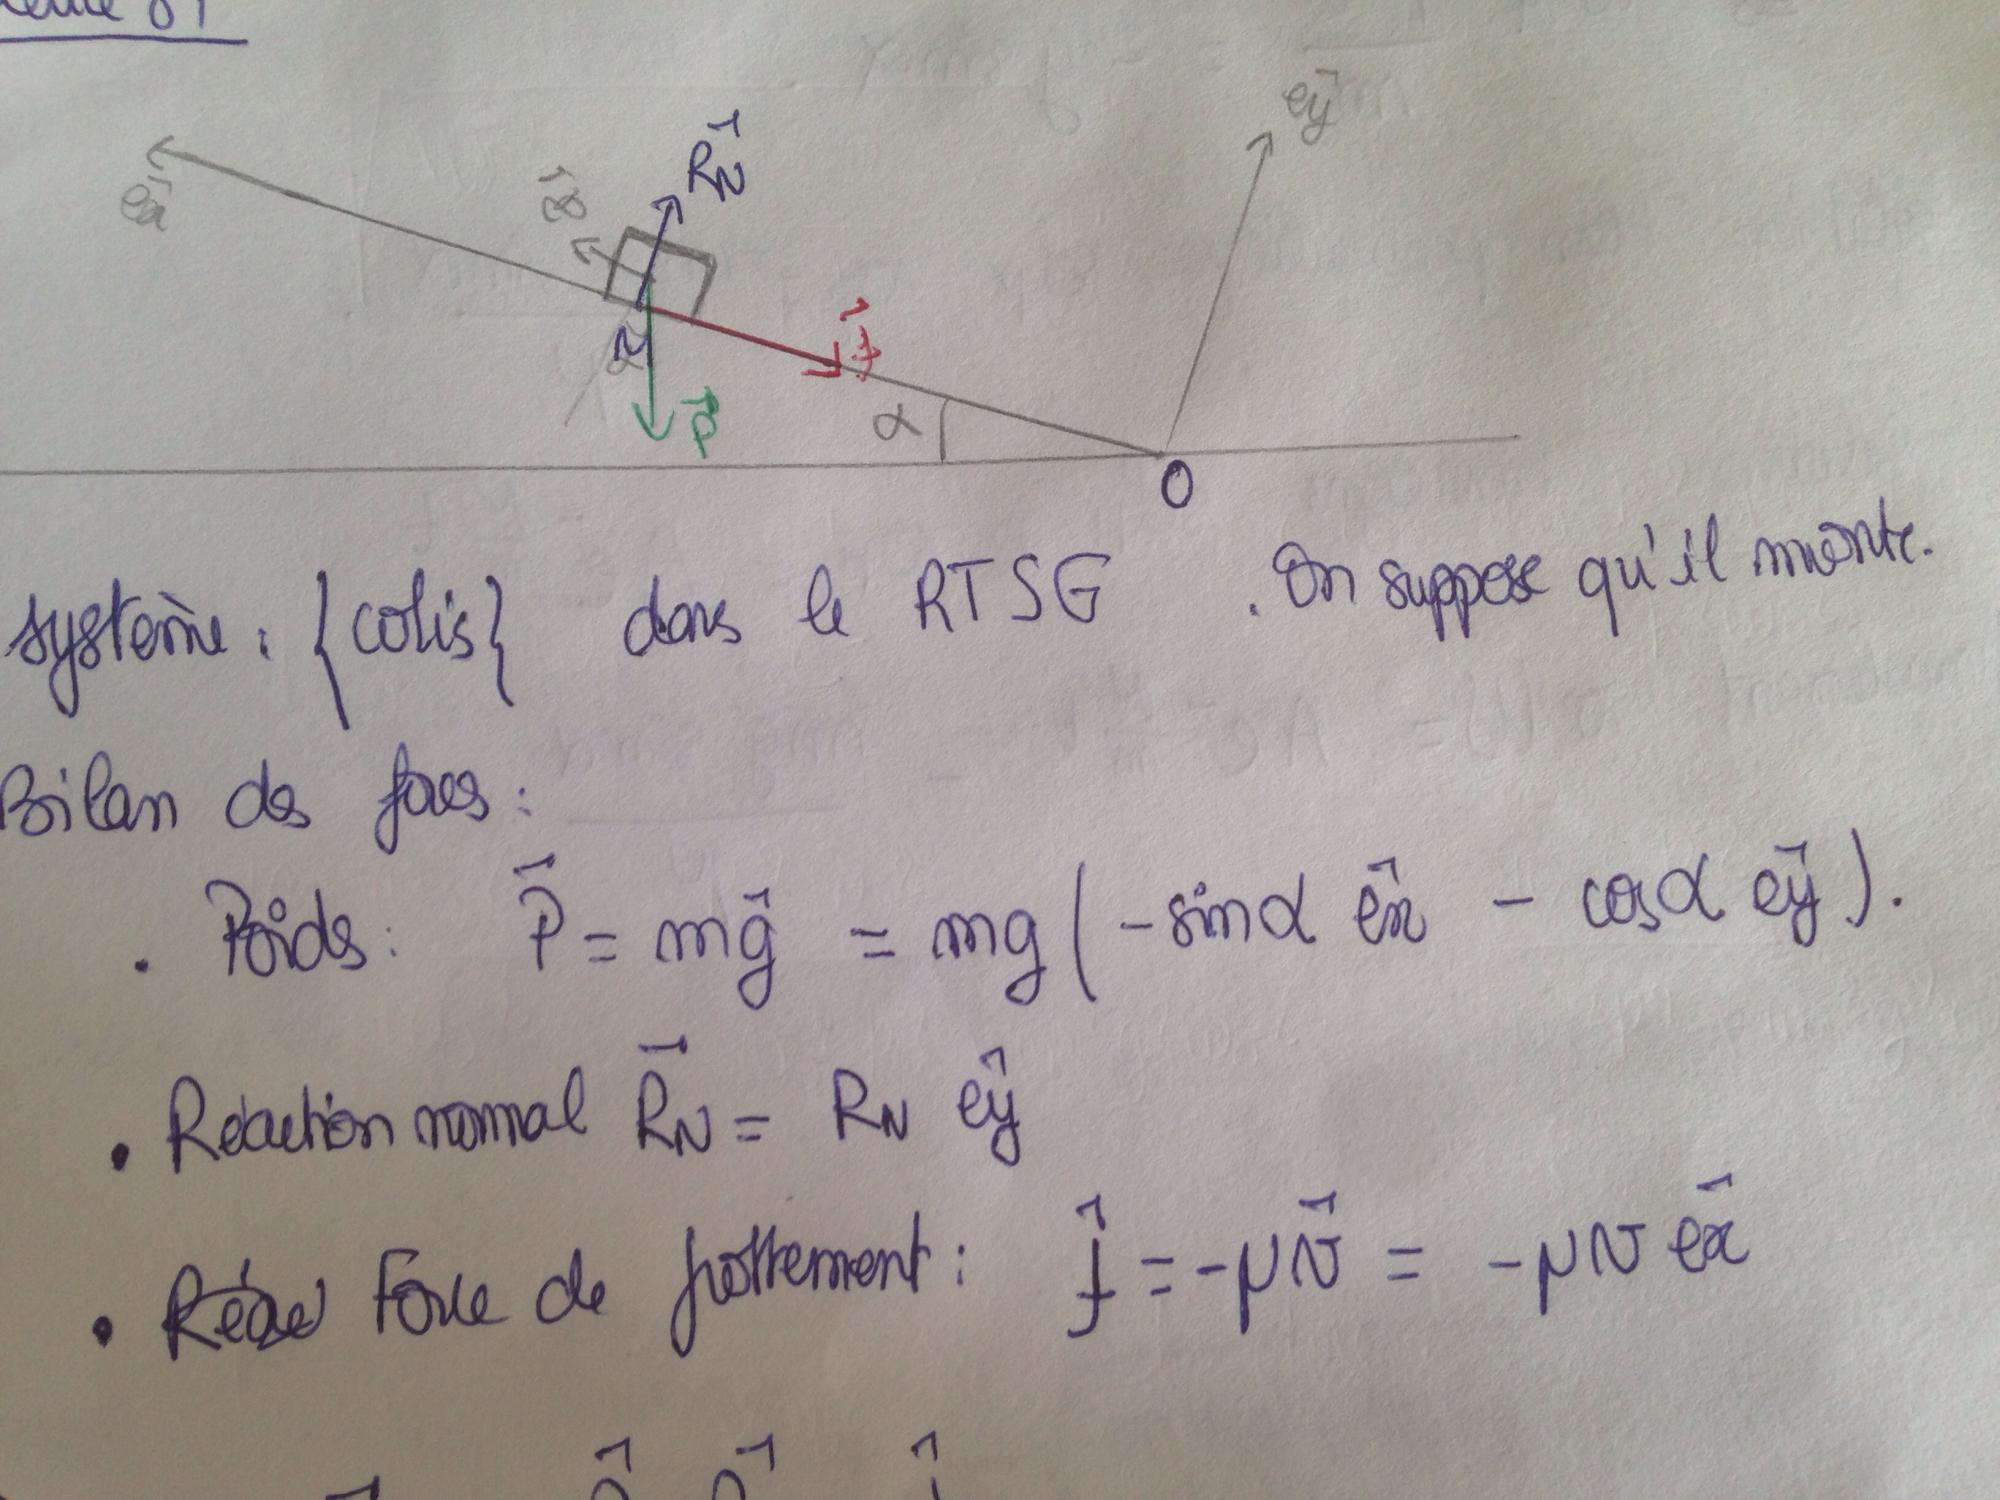 ey
RN
ex
f
α
P
O
système : {colis} dans le RTSG. On suppose qu'il monte.
Bilan des forces :
. Poids : P = mg = mg(-sinα ex - cosα ey).
. Réaction normal RN = RN ey
. Force de frottement : f = -μN = -μN ex